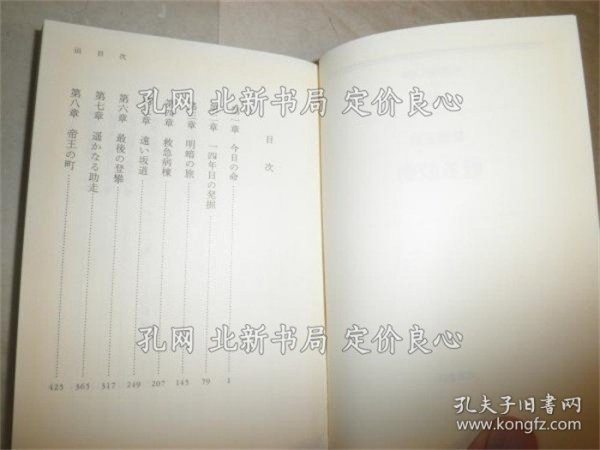 目次
目次
第一章 今日の命 1
第二章 一四年目の発掘 79
第三章 明暗の旅 145
第四章 救急病棟 207
第五章 遠い坂道 249
第六章 最後の登攀 317
第七章 遥かなる助走 363
第八章 帝王の町 425
孔网 北新书局 定价良心
孔网 北新书局 定价良心
孔夫子旧书网
www.kongfz.com